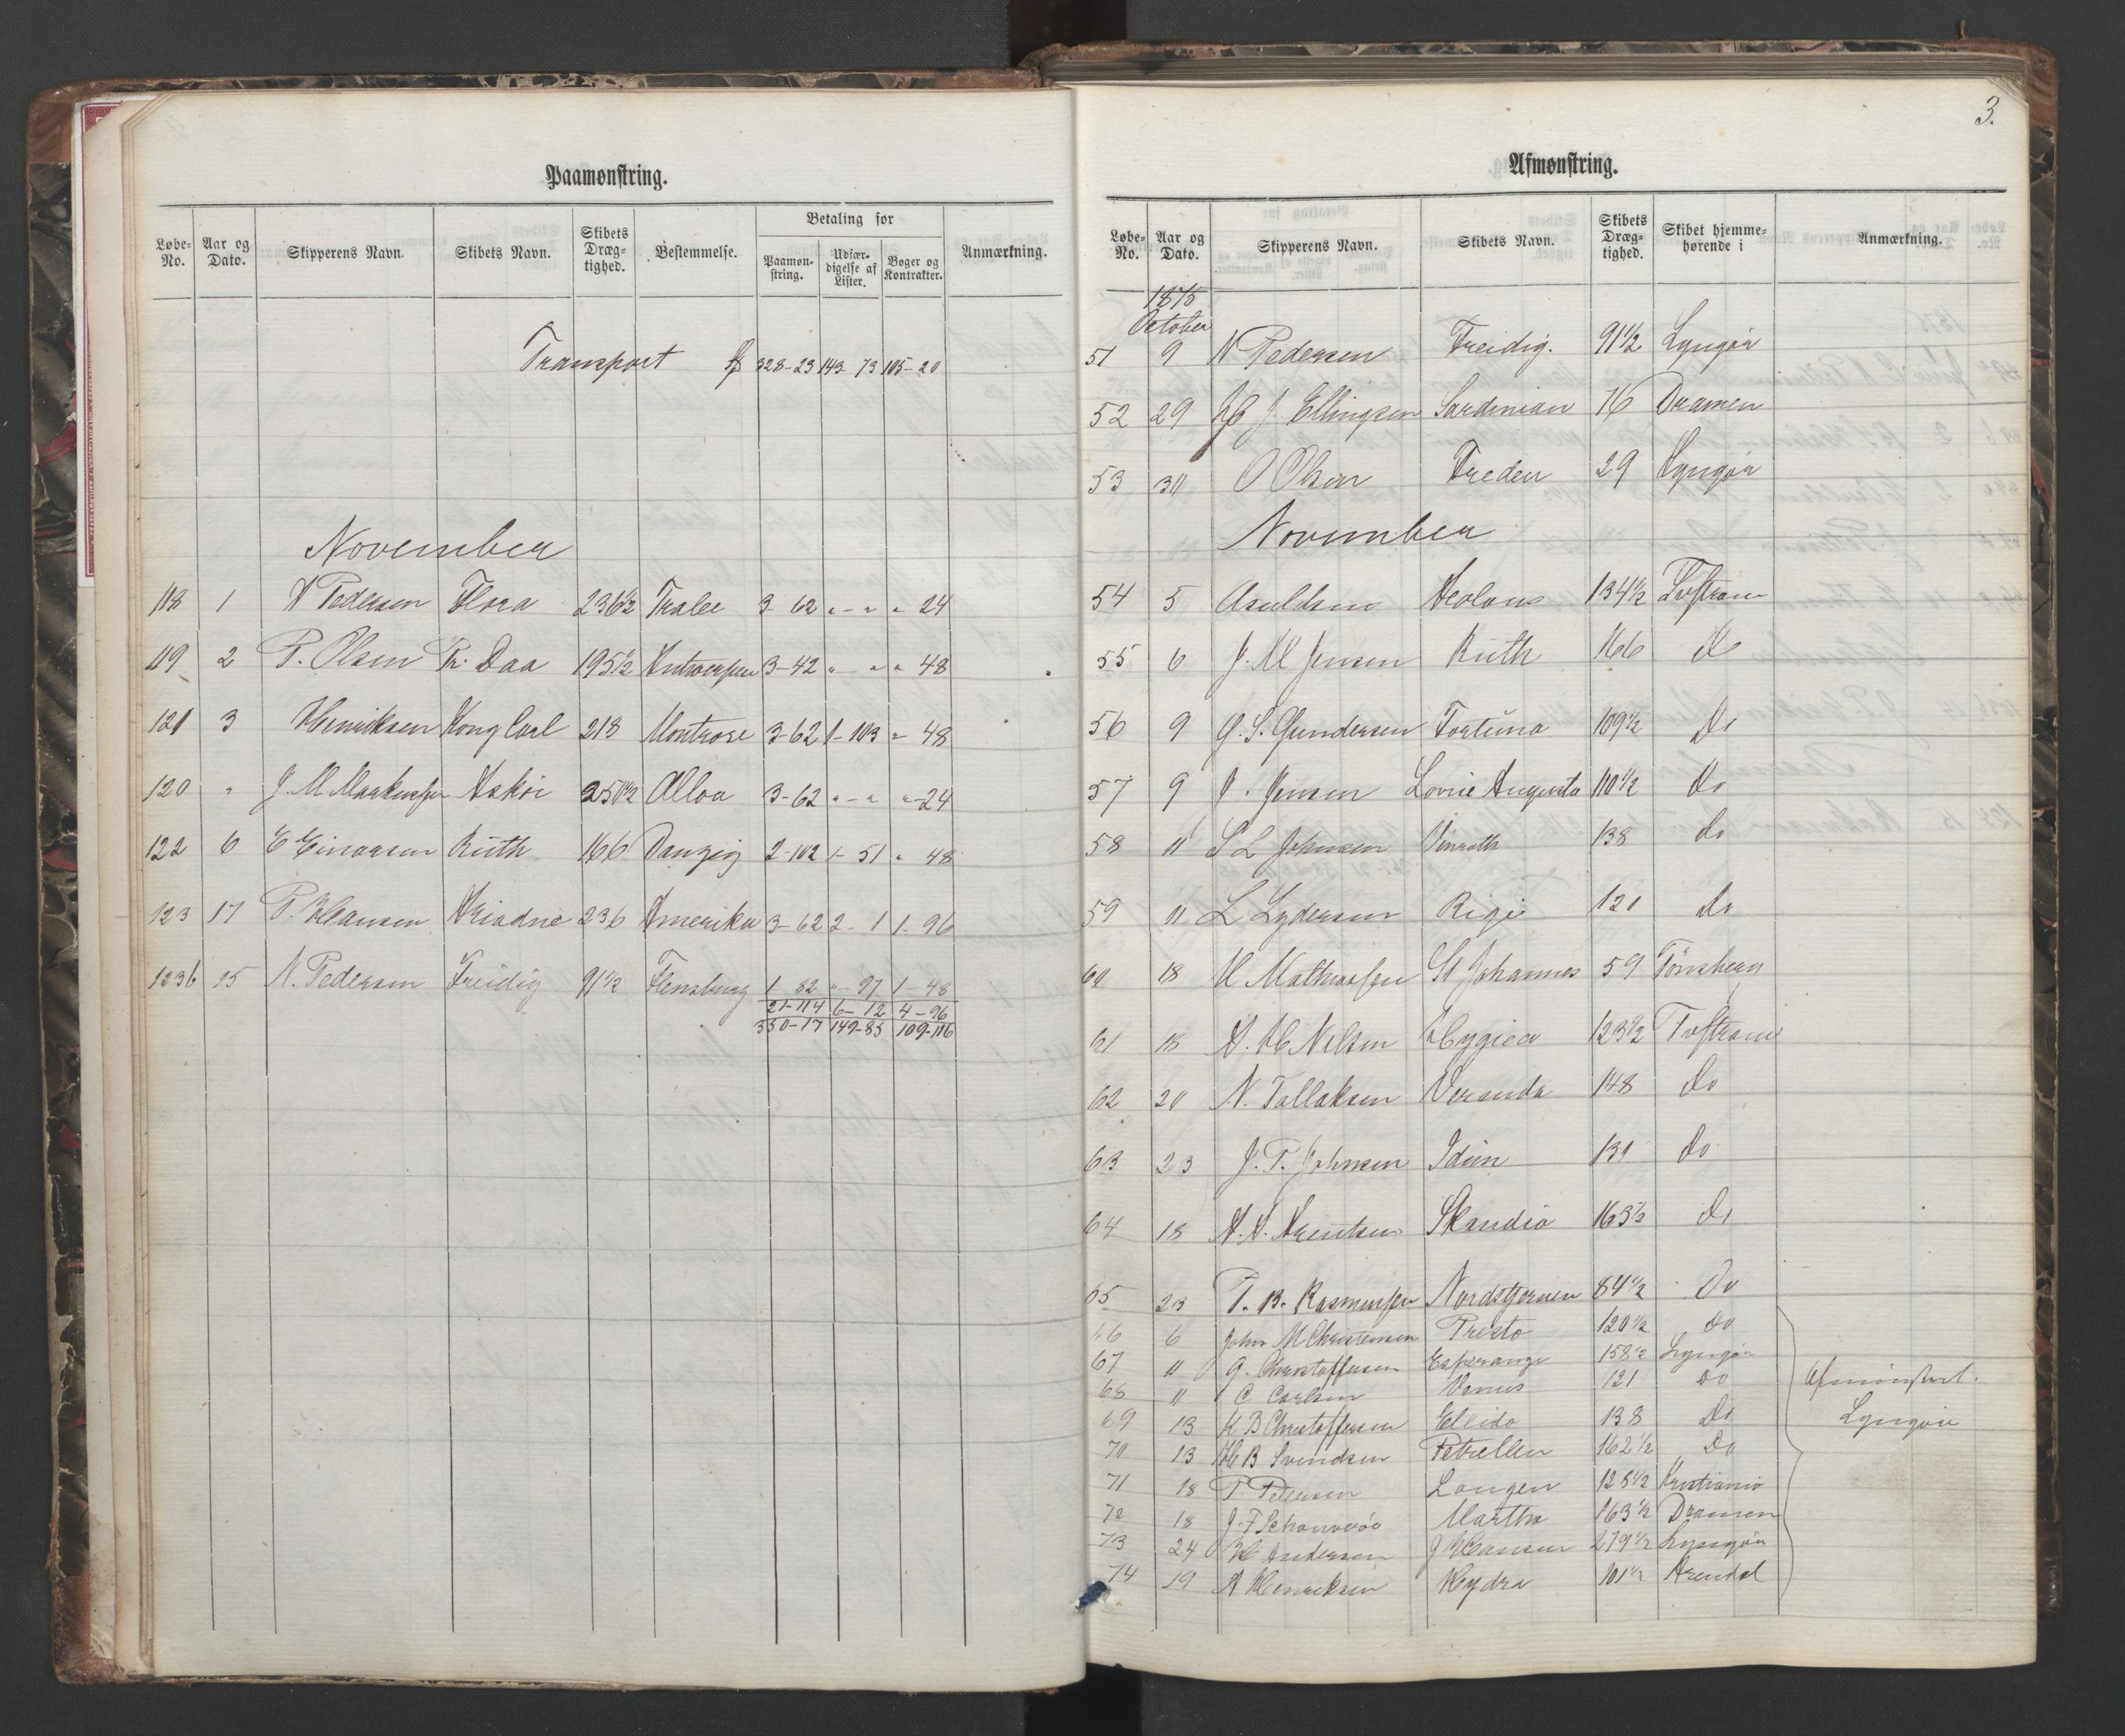 Paamønstring.
Løbe-No. Aar og Dato. Skipperens Navn. Skibets Navn. Skibets Dræg-tighed. Bestemmelse. Betaling for Paamøn-string. Udfær-digelse af Lister. Bøger og Kontrakter. Anmærkning.
Transport 328-23 143-73 105-20
November
118 1 A Pedersen Flora 236½ Tralee 3-62 „-„ „ 24
119 2 P. Olsen Fr. Daa 195½ Antwerpen 3-42 „-„ „ 48
121 3 Henriksen Kong Carl 218 Montrose 3-62 1-103 „ 48
120 „ J. M. Askøi 250½ Alloa 3-62 „-„ „-24
122 6 E Einarsen Ruth 166 Danzig 2-102 1-51 „ 48
123 17 P. Hansen Ariadne 236 Amerika 3-62 2-1 1-96
123b 15 N. Pedersen Freidig 91½ Flensburg 1-82 „-97 1-48
21-114 6-12 4-96
350-17 149-85 109-116
3.
Afmønstring.
Løbe-No. Aar og Dato. Skipperens Navn. Skibets Navn. Skibets Dræg-tighed. Skibet hjemme-hørende i Anmærkning.
1875
October
51 9 N Pedersen Freidig. 91½ Lyngør
52 29 J Ellingsen Sardinian 76 Dramen
53 30 O Olsen Freden 29 Lyngør
November
54 5 Aeolous 134½
55 6 J. M Jensen Ruth 166 Do
56 9 G. S. Gundersen Fortuna 109½ Do
57 9 J. Jensen Lovise Augusta 110½ Do
58 11 S L Johnsen 138 Do
59 11 L Lydersen Rigi 121 Do
60 18 M Mathiassen St Johannes 59 Tønsberg
61 18 A. H Nelsen Hygiea 123½
62 20 N. Tallaksen Veranda 148 Do
63 23 J. T. Johnsen Idun 131 Do
64 18 A. A. Arentsen Skandia 163½ Do
65 23 T. B. Rasmussen Nordstjernen 84½ Do
66 6 John M Christensen Presto 120½ Do
67 11 G. Christoffersen Esperance 158½ Lyngør
68 11 C Carlsen Venus 121 Do
69 13 K B Christoffersen Ellida 138 Do
70 13 H B Svendsen Petrellen 162½ Do
71 18 P Pedersen Langen 128½ Kristiania
72 18 J. F Martha 163½ Dramen
73 24 H Andersen J Hansen 279½ Lyngør
74 19 A Henriksen Hydra 101½ Arendal
Afmønstret.
Lyngør